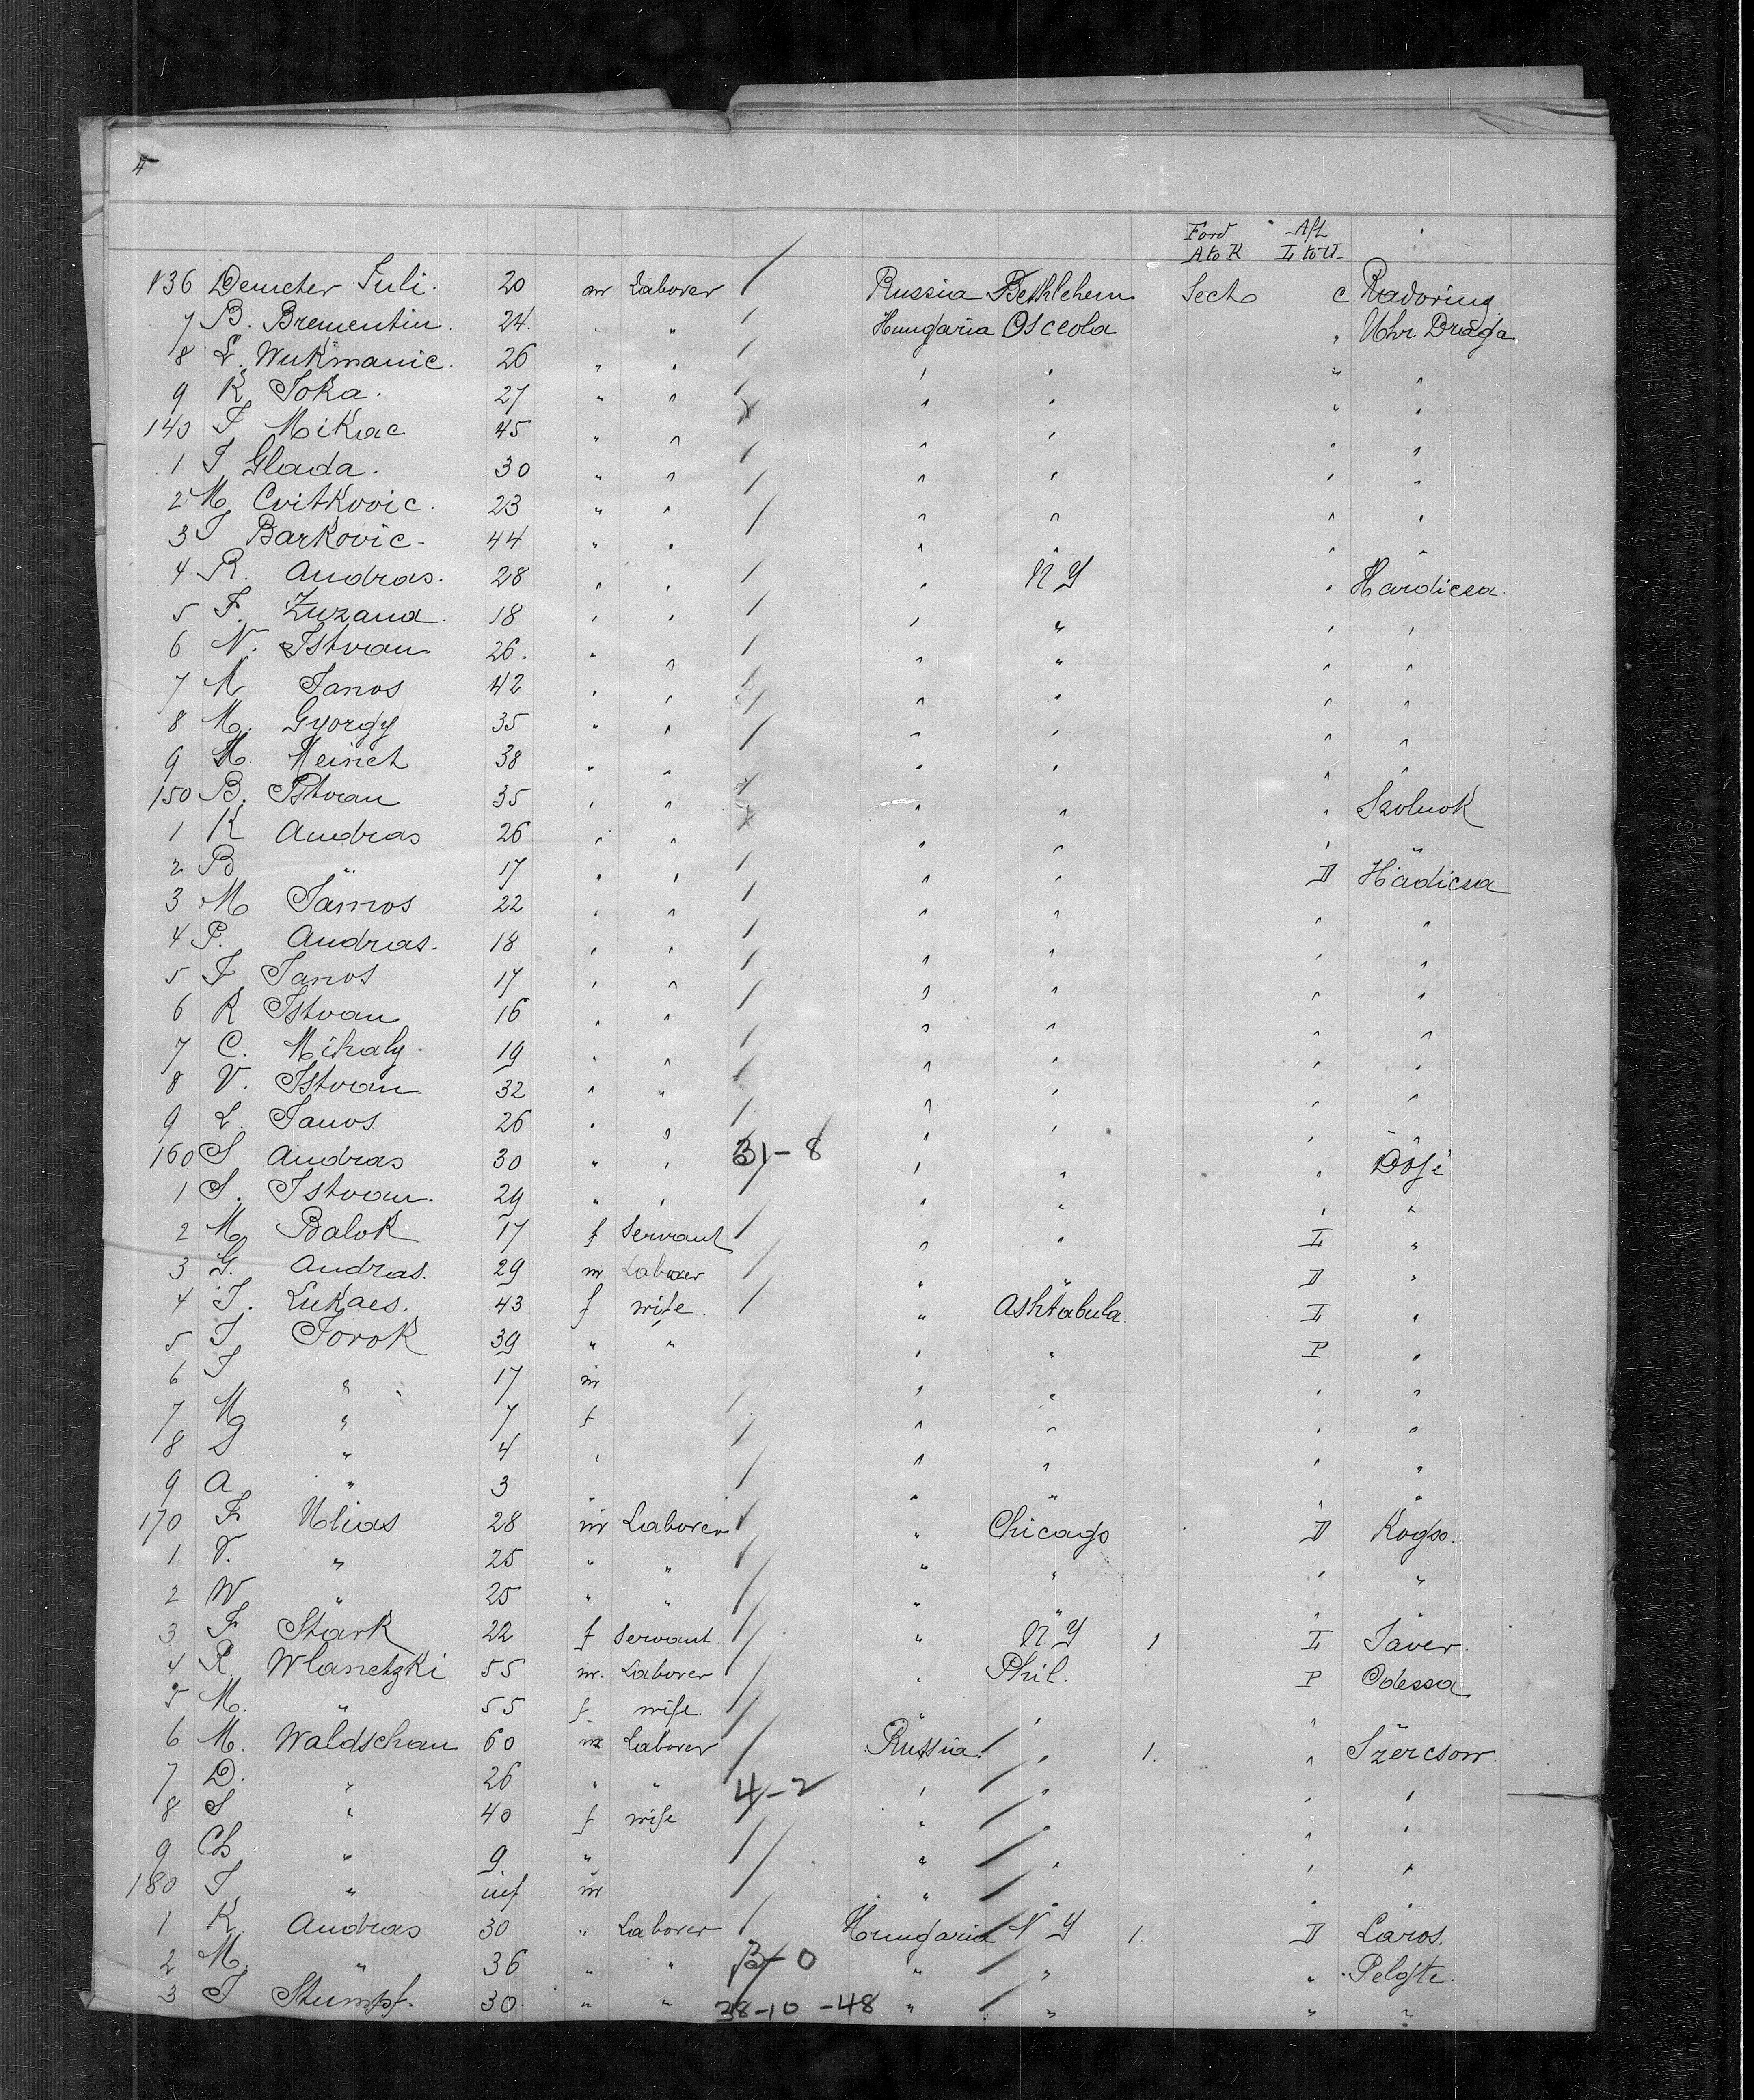 4
Ford Aft
A to K L to U
136 Demeter Juli. 20 m Laborer / Russia Bethlehem Sect c Radoring
7 B. Brementin. 24. " " / Hungaria Osceola " Uhr Draga
8 L. Wukmanic. 26 " " / " " " "
9 K Joka. 27 " " / " " " "
140 J Mikac 45 " " " " " "
1 J Glada. 30 " " / " " " "
2 M Cvitkovic. 23 " " / " " " "
3 J Barkovic- 44 " " / " " " "
4 R. Andras. 28 " " / " N Y " Hardicsa.
5 F. Zuzana. 18 " " / " " " "
6 N. Istvan 26. " " / " " " "
7 M Janos 42 " " / " " " "
8 M. Gyorgy 35 " " / " " " "
9 M. Meinet 38 " " / " " " "
150 B. Istvan 35 " " / " " " Szolnok
1 K Andras 26 " " " " " "
2 B " 17 " " / " " D Hadicsa
3 M Jämos 22 " " / " " " "
4 P. Andras. 18 " " / " " " "
5 J Janos 17 " " / " " " "
6 R Istvan 16 " " / " " " "
7 C. Mihaly. 19 " " / " " " "
8 V. Istvan 32 " " / " " " "
9 L. Janos. 26 " " / " " " "
160 S Andras 30 " " 31-8 " " " Dosi
1 S. Istvan. 29 " " / " " " "
2 M Balok 17 f Servant / " " L "
3 G. Andras. 29 m Laborer / " " D "
4 J. Lukacs. 43 f wife. / " Ashtabula. L "
5 J Torok 39 " " " " P "
6 J " 17 m " " " "
7 M " 7 f / " " " "
8 S " 4 " / " " " "
9 A " 3 " / " " " "
170 F Ulias 28 m Laborer / " Chicago D Kogso.
1 V. " 25 " " / " " " "
2 W " 25 " " / " " " "
3 F Stark 22 f Servant / " N Y 1 L Javer.
4 R. Wlanetzki 55 m. Laborer / " Phil. P Odessa
5 M. " 55 f wife. / " " "
6 M. Waldschan 60 m Laborer / Russia / " 1. " Szercsow.
7 D. " 26 " " 4-2 " / " " "
8 S " 40 f wife " / " " "
9 Ch " 9. " / " / " " "
180 J " inf m / " / " " "
1 K Andras 30 " Laborer / Hungaria N Y 1. D Laros.
2 M. " 36 " " 3-0 " / " " Pelejte.
3 J Stumpf. 30. " " 38-10-48 " / " " "